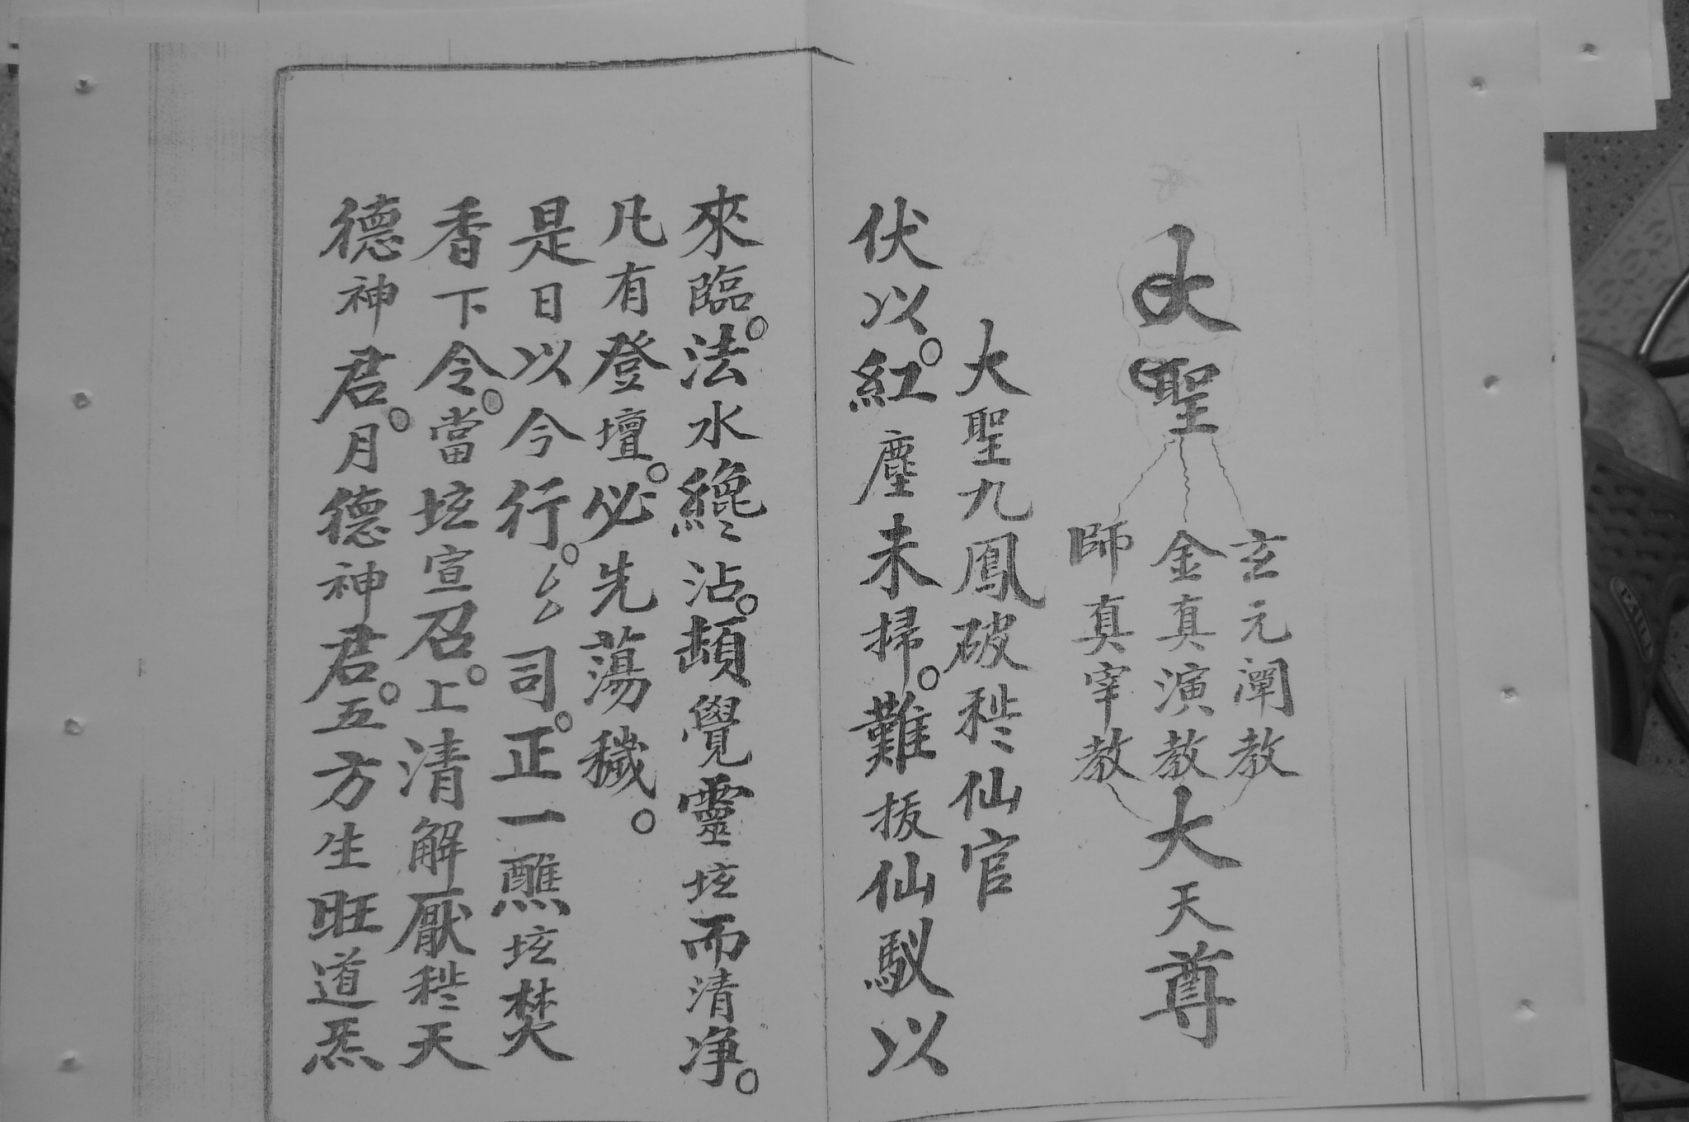 大聖
玄元闡教
金真演教
師真宰教
大天尊
大聖九鳳破秽仙官
伏以。紅塵未掃。難扳仙馭以
來臨。法水纔沾。頓覺靈坛而清净。
凡有登壇。必先蕩穢。
是日以今行。厶厶司。正一醮坛焚
香下令。當坛宣召。上清解厭秽天
德神君。月德神君。五方生旺道炁